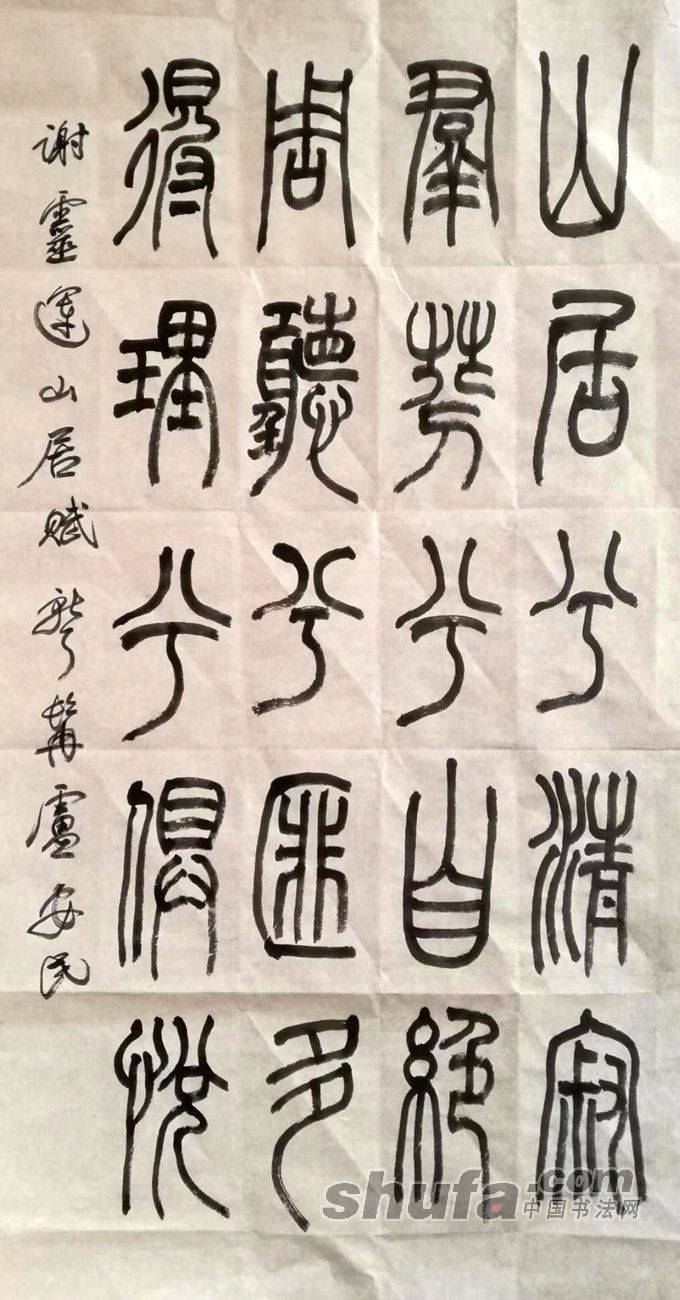 山居兮清寂
羣芬兮自絶
周聽兮匪多
得理兮俱悅
谢靈運山居賦 髯盧安民
shufa.com
中国书法网